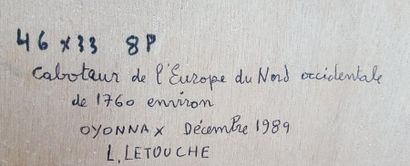 46 x 33 8P
Caboteur de l'Europe du Nord occidentale
de 1760 environ
OYONNAX Décembre 1989
L. LETOUCHE